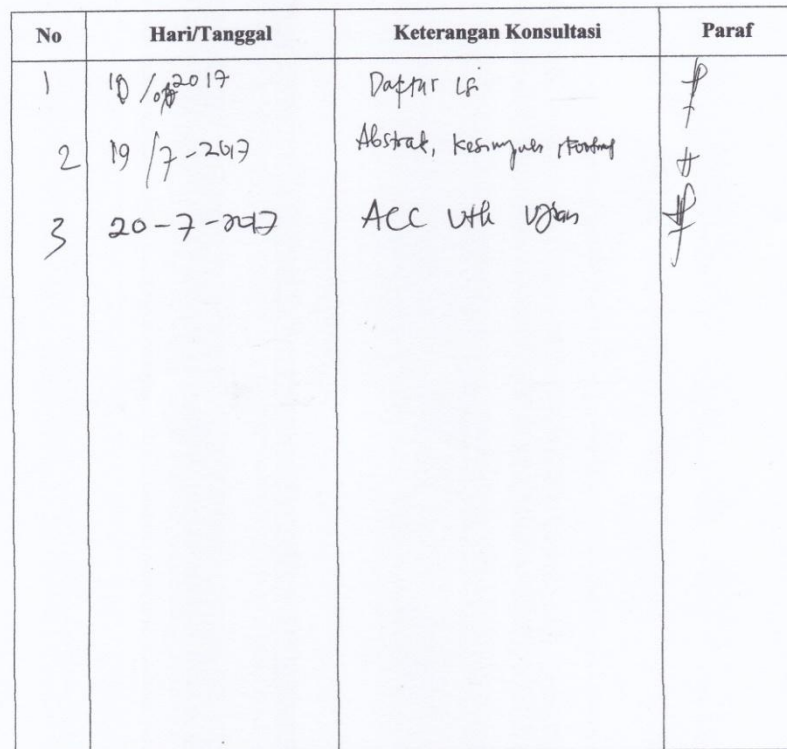 No Hari/Tanggal Keterangan Konsultasi Paraf
1 2017 Daftar isi
2 19/7-2017 Abstrak, Kesimpulan
3 20-7-2017 ACC utk Ujian